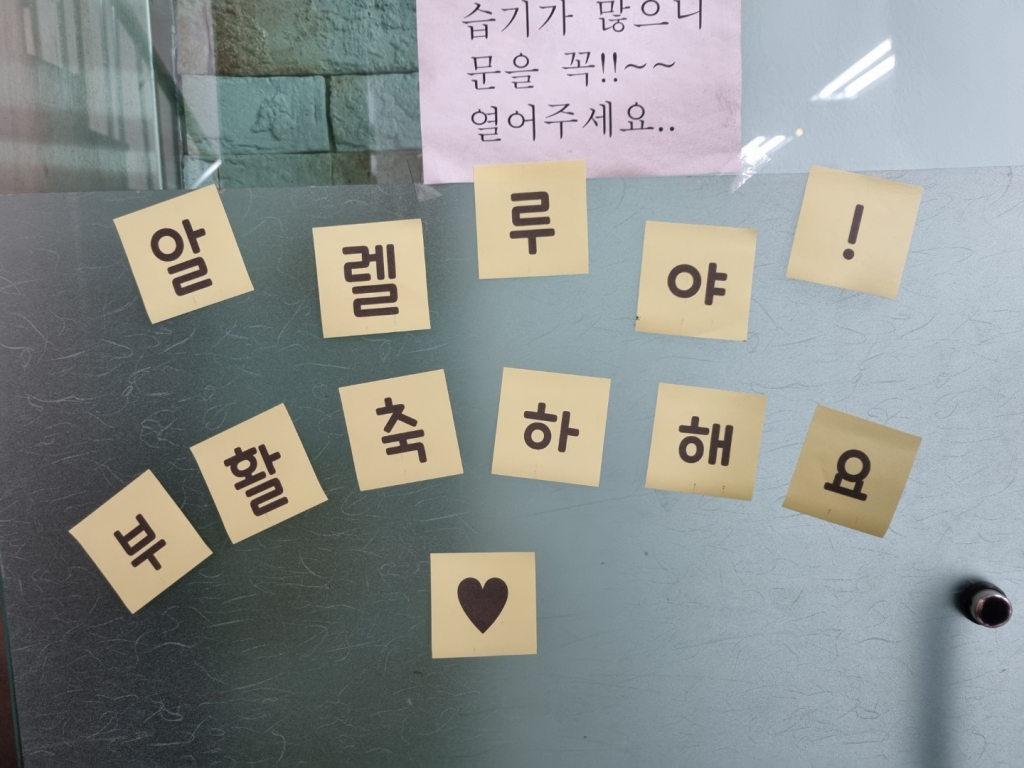 습기가 많으니
문을 꼭!!~~
열어주세요..
알렐루야!
부활축하해요
♥